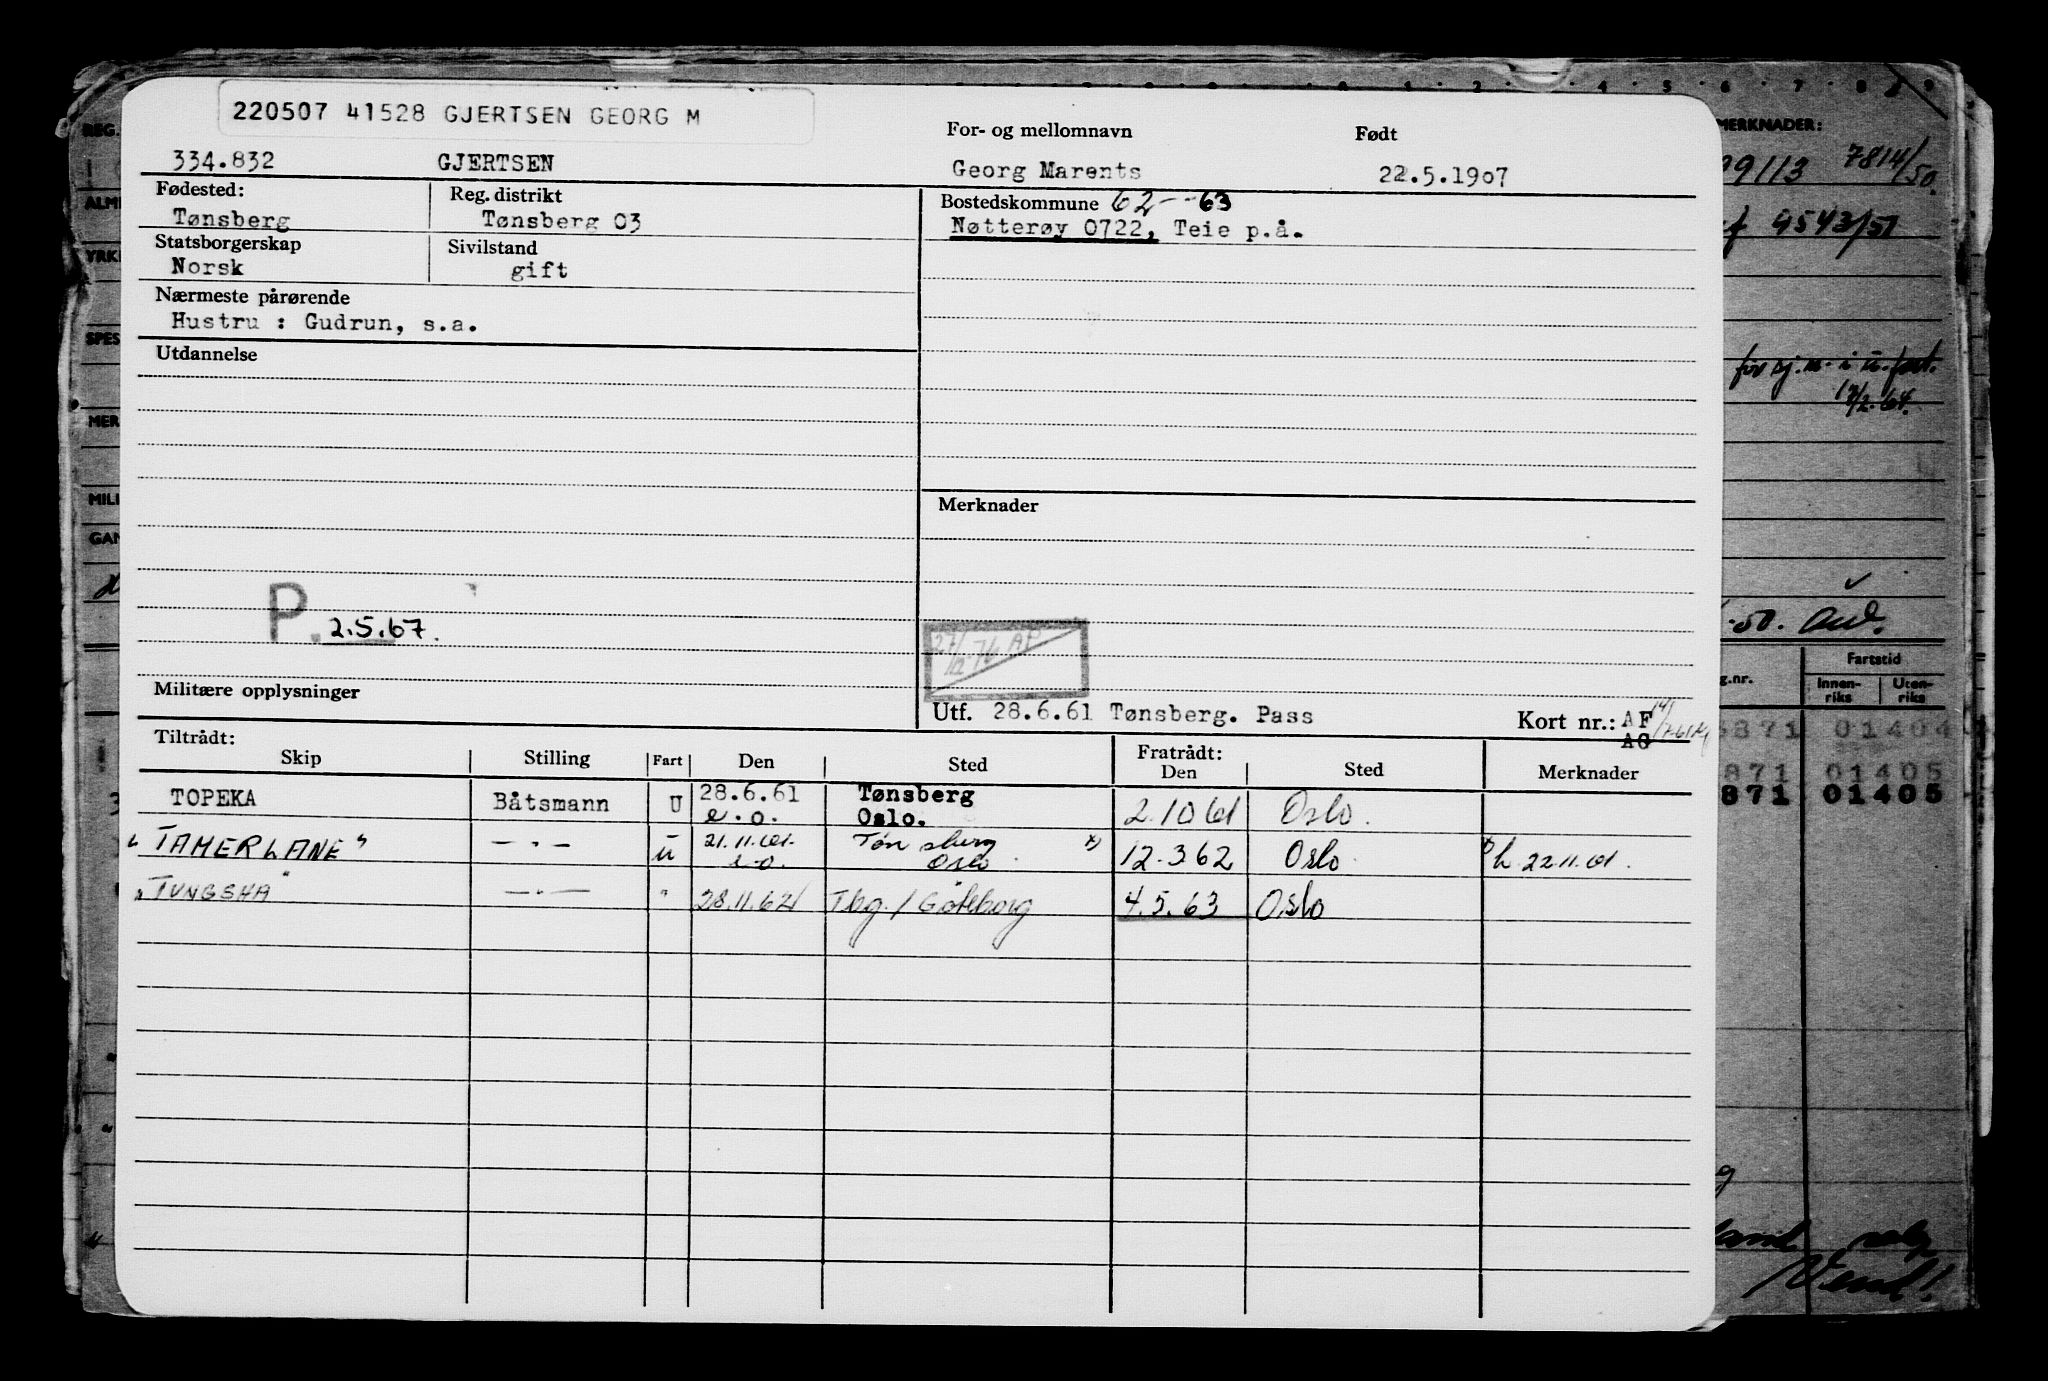 220507 41528 GJERTSEN GEORG M
334.832 GJERTSEN
For- og mellomnavn Født
Georg Marents 22.5.1907
Fødested: Reg. distrikt
Tønsberg Tønsberg 03
Bostedskommune 62 - - 63
Nøtterøy 0722, Teie p.å.
Statsborgerskap Sivilstand
Norsk gift
Nærmeste pårørende
Hustru : Gudrun, s.a.
Utdannelse
Merknader
P. 2.5.67.
27/12.76 AP
Militære opplysninger
Utf. 28.6.61 Tønsberg. Pass Kort nr.: AF
AG
Tiltrådt: Fratrådt:
Skip Stilling Fart Den Sted Den Sted Merknader
TOPEKA Båtsmann U 28.6.61 Tønsberg 2.10 61 Oslo.
e.o. Oslo.
"TAMERLANE" — " — u 21.11.61. Tønsberg x) 12.3 62 Oslo x) h. 22.11.61.
e.o. Oslo
"TUNGSHA" — " — " 28.11.62 Tbg. / Göteborg 4.5.63 Oslo
REG.
ALM
YRK
SPES
MER
MILI
GAN
MERKNADER:
09113 7814/50.
9543/51
for sj.m. i u. fart.
.50.
g.nr. Fartstid
Innen-riks Uten-riks
6871 01404
871 01405
871 01405